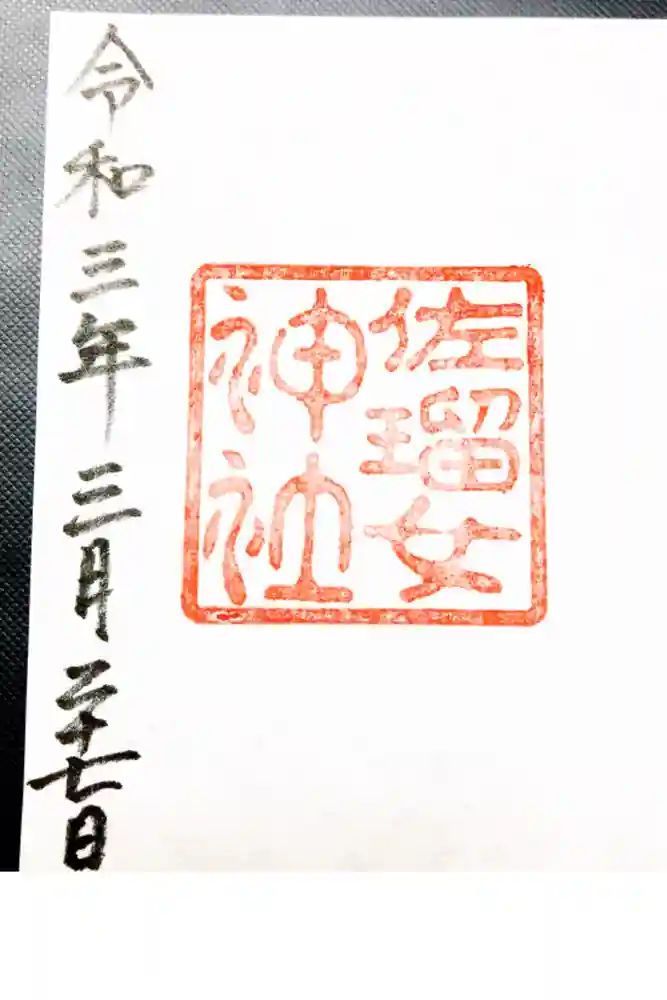 佐瑠女
神社
令和三年三月二十七日